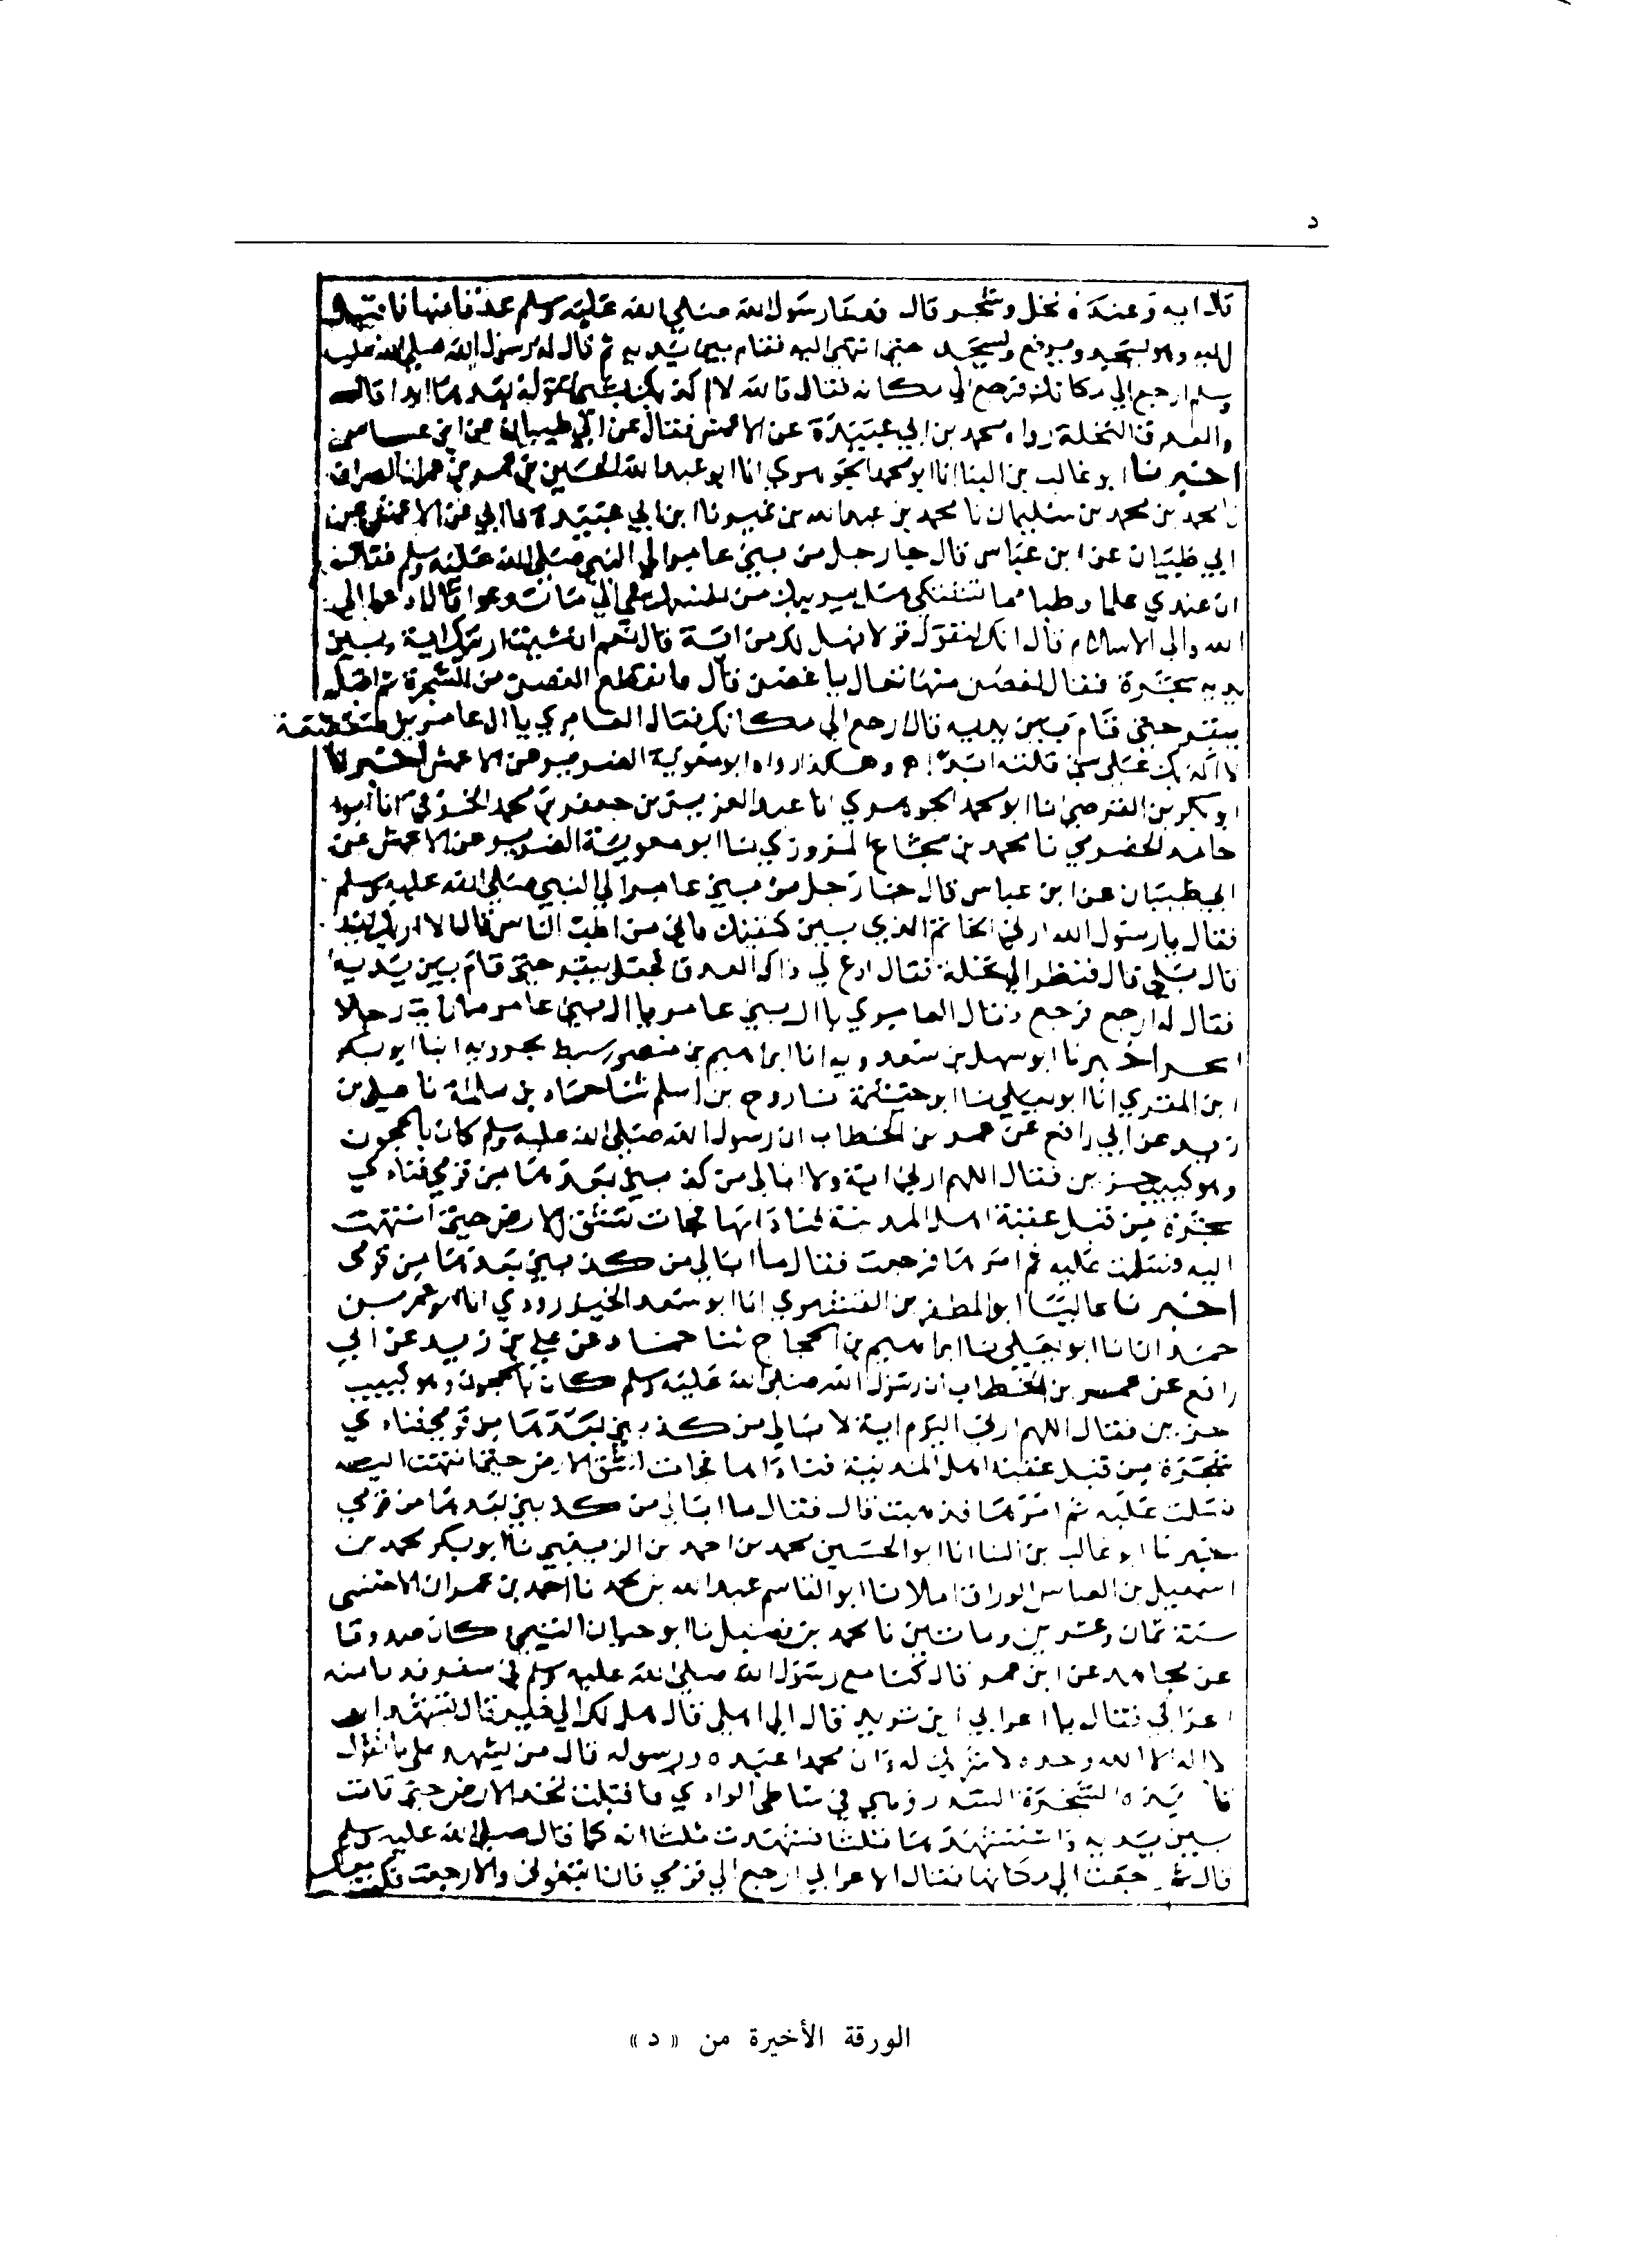 د
قال اية وعنده نخل وشجر قال فدعا رسول الله صلى الله عليه وسلم عذقا منها فاقبل
اليه وهو يسجد ويرفع ويسجد حتى انتهى اليه فقام بين يديه ثم قال له رسول الله صلى الله عليه
وسلم ارجع الى مكانك فرجع الى مكانه فقال والله لا اكذبك بشي تقوله بعدها ابدا قال
والعذق النخلة رواه محمد بن ابي عبيدة عن الاعمش فقال عن ابي ظبيان عن ابن عباس
اخبرنا ابو غالب بن البنا انا ابو محمد الجوهري انا ابو عبد الله الحسين بن عمر بن عمران الضراب
نا محمد بن محمد بن سليمان نا محمد بن عبد الله بن نمير نا ابن ابي عبيدة نا ابي عن الاعمش عن
ابي ظبيان عن ابن عباس قال جا رجل من بني عامر الى النبي صلى الله عليه وسلم فقال
ان عندي علما وطبا فما تشتكي هل يريبك من نفسك شي الى ما تدعو قال ادعو الى
الله والى الاسلام قال انك لتقول قولا فهل لك من اية قال نعم ان شيت اريتك اية وبين
يديه شجرة فقال لغصن منها تعال يا غصن قال فانقطع الغصن من الشجرة ثم اقبل
ينقز حتى قام بين يديه قال ارجع الى مكانك فقال العامري يا ال عامر بن صعصعة
لا الومك على شي قلته ابدا ح وهكذا رواه ابو معوية الضرير عن الاعمش اخبرنا
ابو بكر بن الفرضي انا ابو محمد الجوهري انا عبد العزيز بن جعفر بن محمد الخرقي انا ابو
حامد الحضرمي نا محمد بن شجاع المروزي نا ابو معوية الضرير عن الاعمش عن
ابي ظبيان عن ابن عباس قال جا رجل من بني عامر الى النبي صلى الله عليه وسلم
فقال يا رسول الله ارني الخاتم الذي بين كتفيك فاني من اطب الناس قال الا اريك اية
قال بلى قال فنظر الى نخلة فقال ادع لي ذاك العذق فجعل ينقز حتى قام بين يديه
فقال له ارجع فرجع فقال العامري يا ال بني عامر يا ال بني عامر ما رايت رجلا
اسحر اخبرنا ابو سهل بن سعدويه انا ابراهيم بن منصور سبط بحرويه انبا ابو بكر
ابن المقري انا ابو يعلى نا ابو خيثمة نا روح بن اسلم ثنا حماد بن سلمة نا علي بن
زيد عن ابي رافع عن عمر بن الخطاب ان رسول الله صلى الله عليه وسلم كان بالحجون
وهو كييب حزين فقال اللهم ارني اية ولا ابالي من كذبني بعدها من قومي فنادى
شجرة من قبل عقبة اهل المدينة فناداها فجات تشق الارض حتى انتهت
اليه فسلمت عليه ثم امرها فرجعت فقال ما ابالي من كذبني بعدها من قومي
اخبرنا عاليا ابو المظفر بن القشيري انا ابو سعد الجنزرودي انا ابو عمر بن
حمدان نا ابو يعلى نا ابراهيم بن الحجاج ثنا حماد عن علي بن زيد عن ابي
رافع عن عمر بن الخطاب ان رسول الله صلى الله عليه وسلم كان بالحجون وهو كييب
حزين فقال اللهم ارني اليوم اية لا ابالي من كذبني بعدها من قومي فنادى
شجرة من قبل عقبة اهل المدينة فناداها فجات تشق الارض حتى انتهت اليه
فسلمت عليه ثم امرها فذهبت قال فقال ما ابالي من كذبني بعدها من قومي
اخبرنا ابو غالب بن البنا انا ابو الحسين محمد بن احمد بن النرسي نا ابو بكر محمد بن
اسمعيل بن العباس الوراق املا نا ابو القاسم عبد الله بن محمد نا احمد بن عمران الاخنسي
سنة ثمان وعشرين ومايتين نا محمد بن فضيل نا ابو حيان التيمي كان صدوقا
عن مجاهد عن ابن عمر قال كنا مع رسول الله صلى الله عليه وسلم في سفر فدنا منه
اعرابي فقال يا اعرابي اين تريد قال الى اهلي قال هل لك الى خير قال تشهد ان
لا اله الا الله وحده لا شريك له وان محمدا عبده ورسوله قال من يشهد على ما تقول
قال هذه الشجرة السدرة وهي في شاطي الوادي فاقبلت تخد الارض حتى قامت
بين يديه فاستشهدها ثلثا فشهدت ثلثا انه كما قال صلى الله عليه وسلم
قال ثم رجعت الى مكانها فقال الاعرابي ارجع الى قومي فان يتبعوني والا رجعت فكنت معك
الورقة الأخيرة من « د »